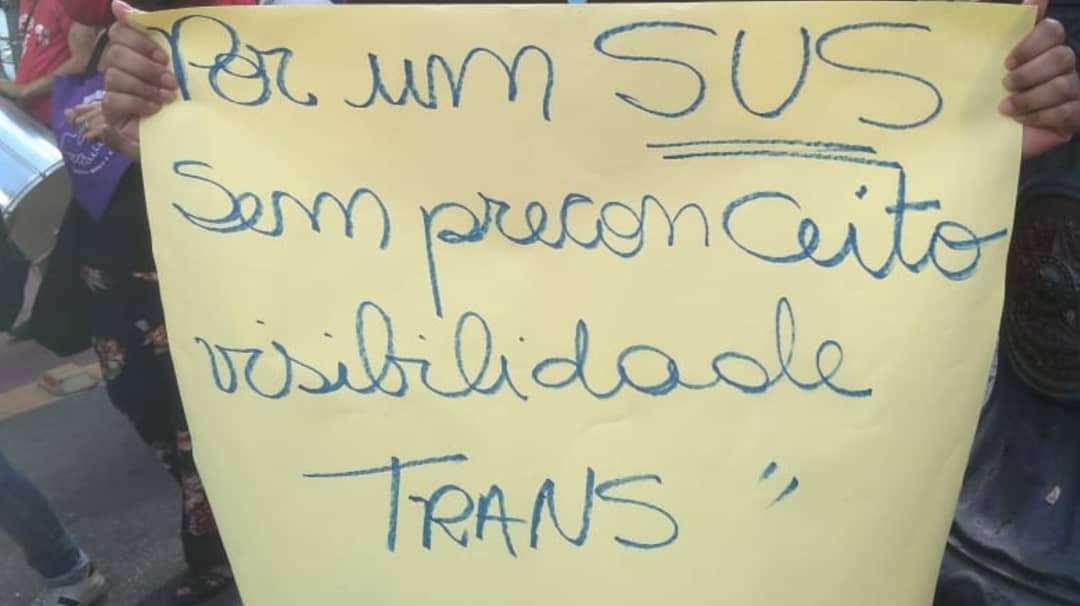 Por um SUS
Sem preconceito
visibilidade
TRANS "